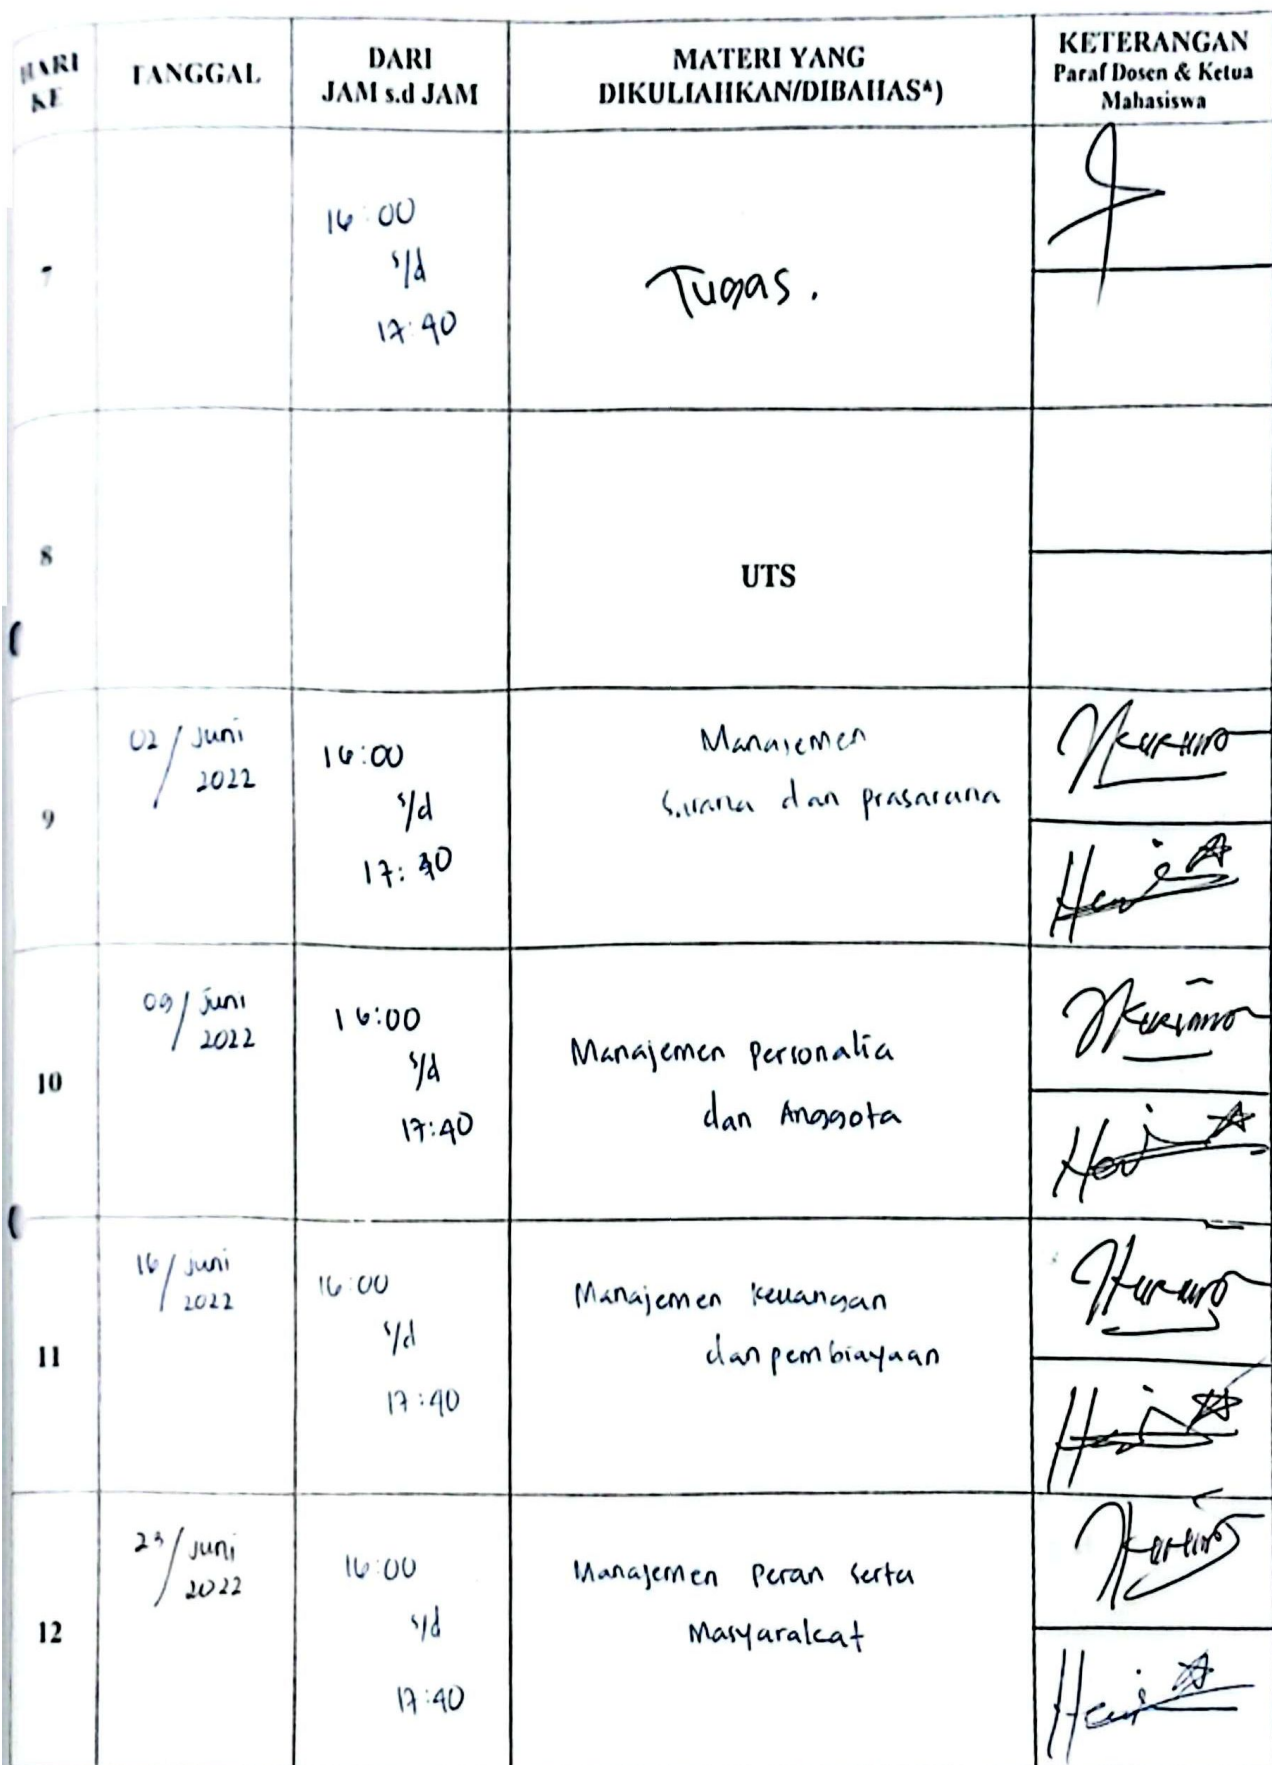 HARI
KE
TANGGAL
DARI
JAM s.d JAM
MATERI YANG
DIKULIAHKAN/DIBAHAS*)
KETERANGAN
Paraf Dosen & Ketua
Mahasiswa
7
16:00
s/d
17:40
Tugas.
8
UTS
9
02/Juni
2022
16:00
s/d
17:40
Manajemen
Sarana dan prasarana
10
09/Juni
2022
16:00
s/d
17:40
Manajemen personalia
dan Anggota
11
16/Juni
2022
16:00
s/d
17:40
Manajemen keuangan
dan pembiayaan
12
23/Juni
2022
16:00
s/d
17:40
Manajemen peran serta
Masyarakat